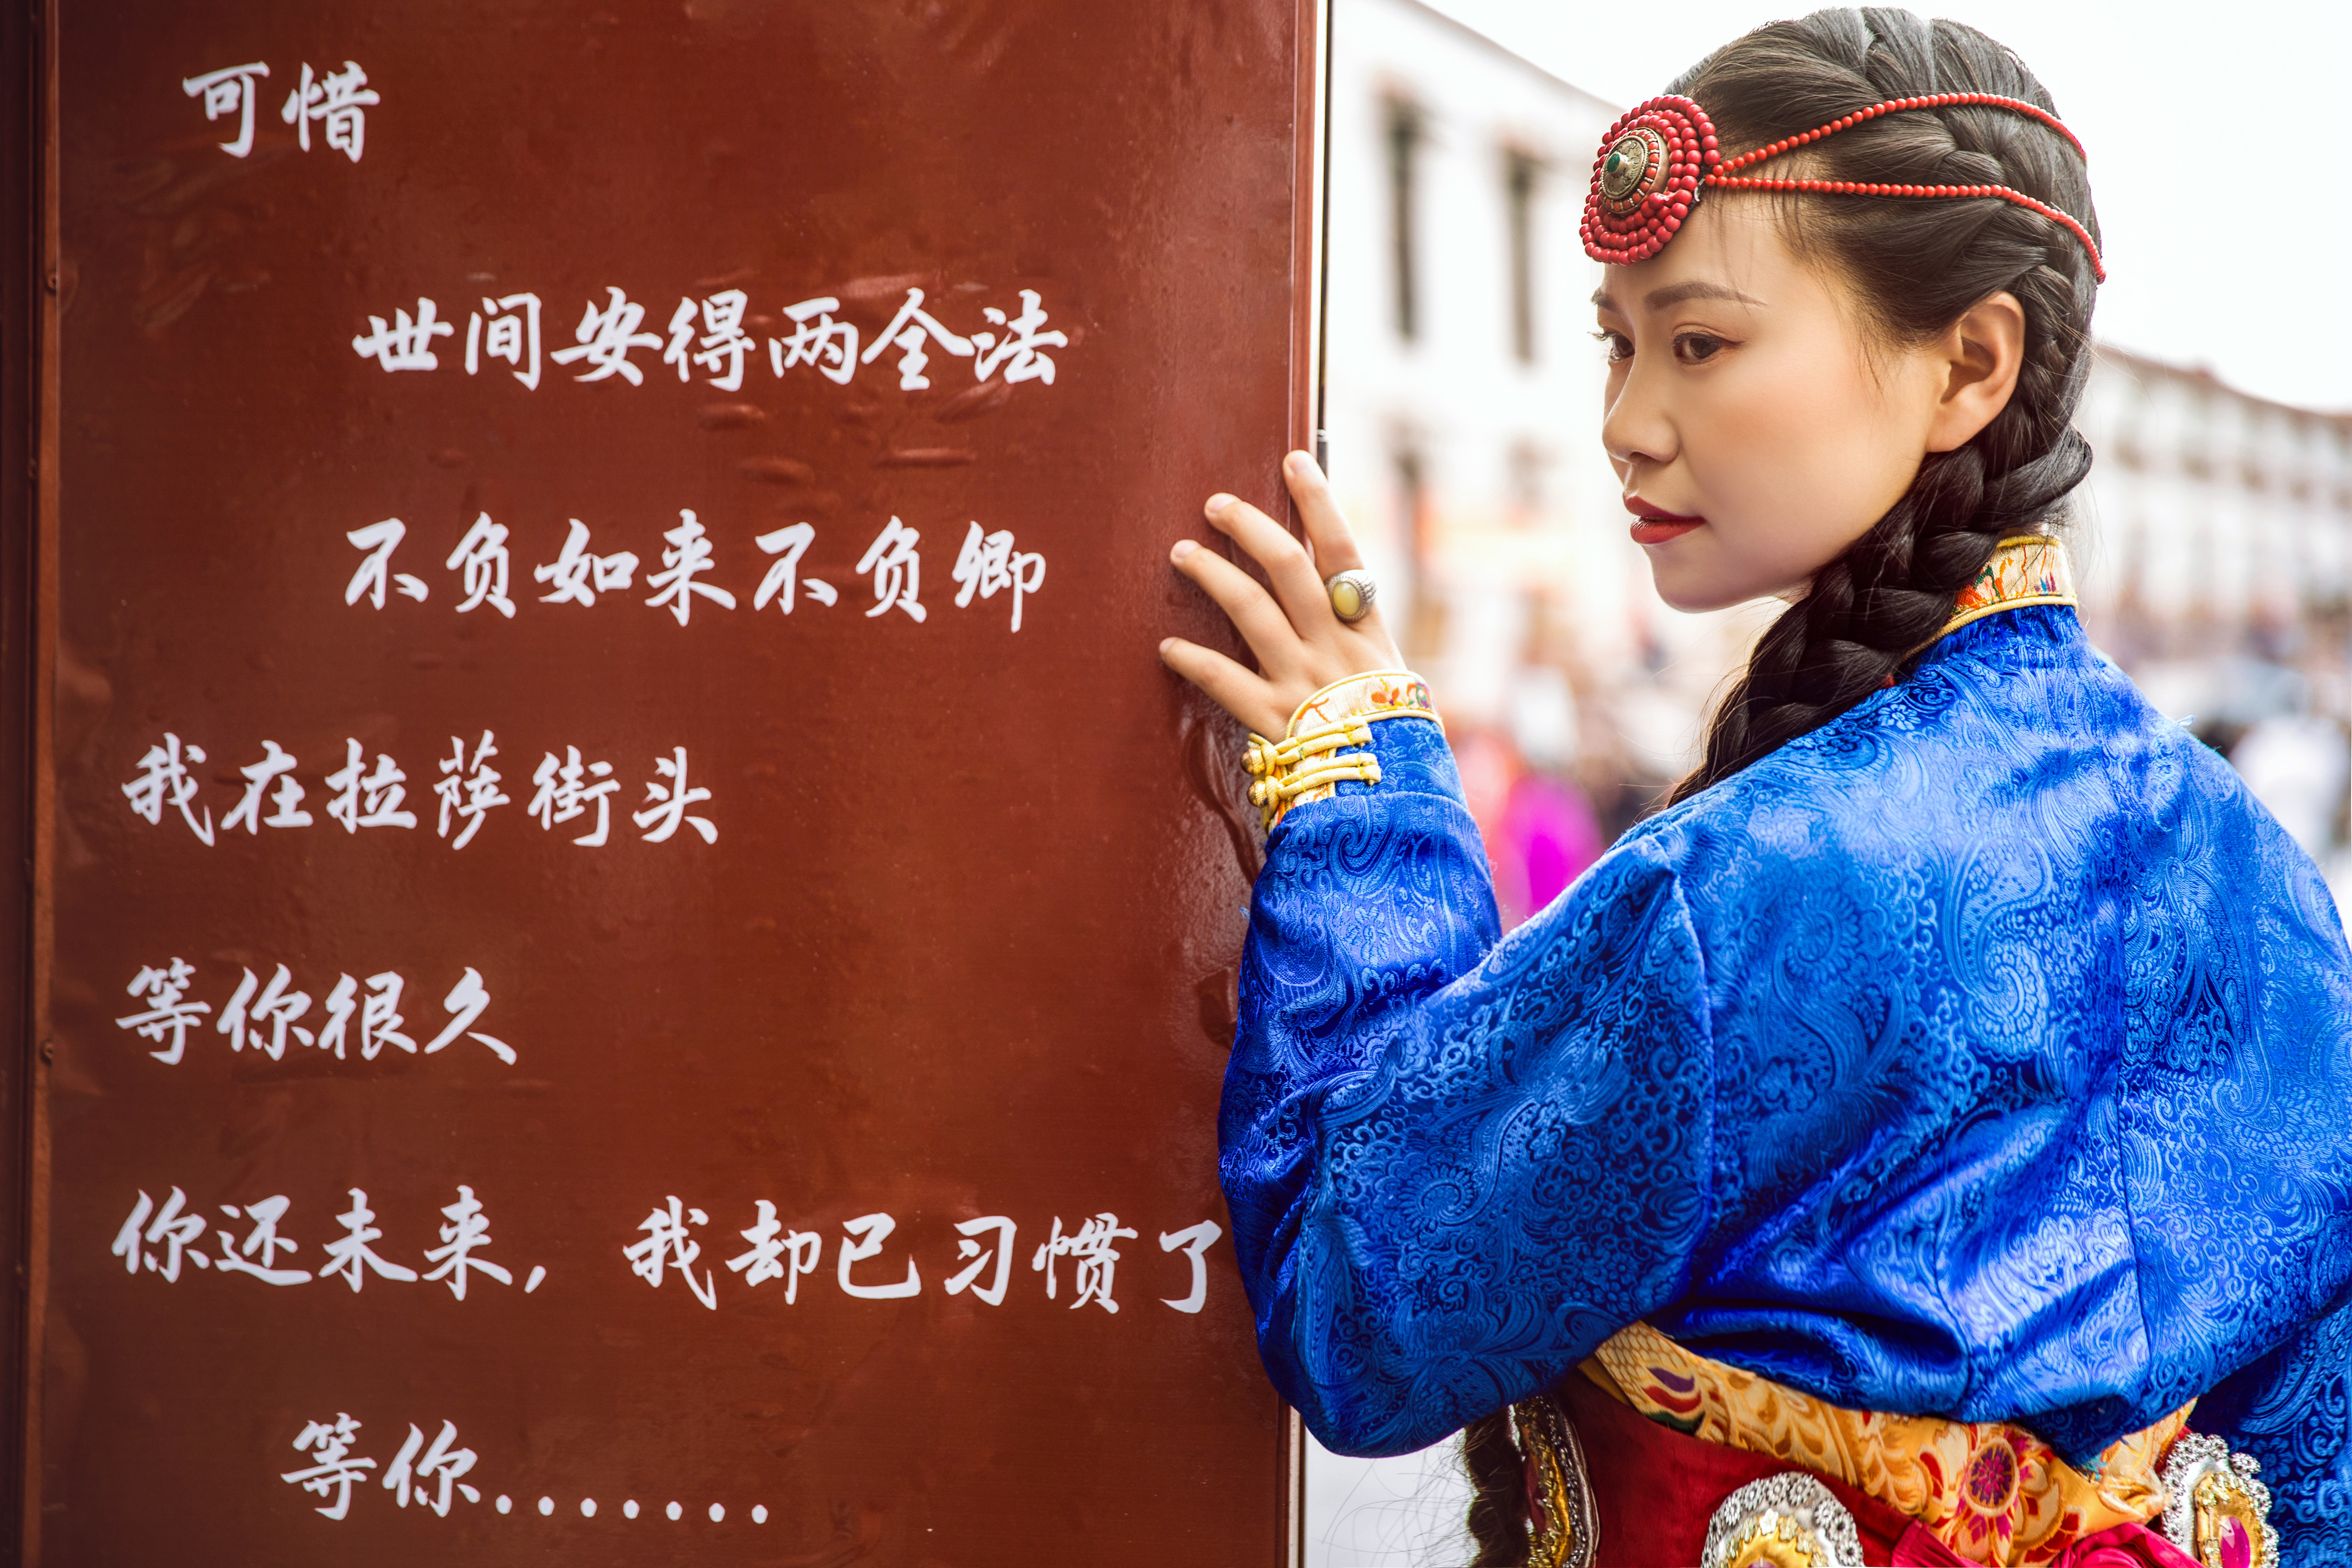 可惜
世间安得两全法
不负如来不负卿
我在拉萨街头
等你很久
你还未来，我却已习惯了
等你.......